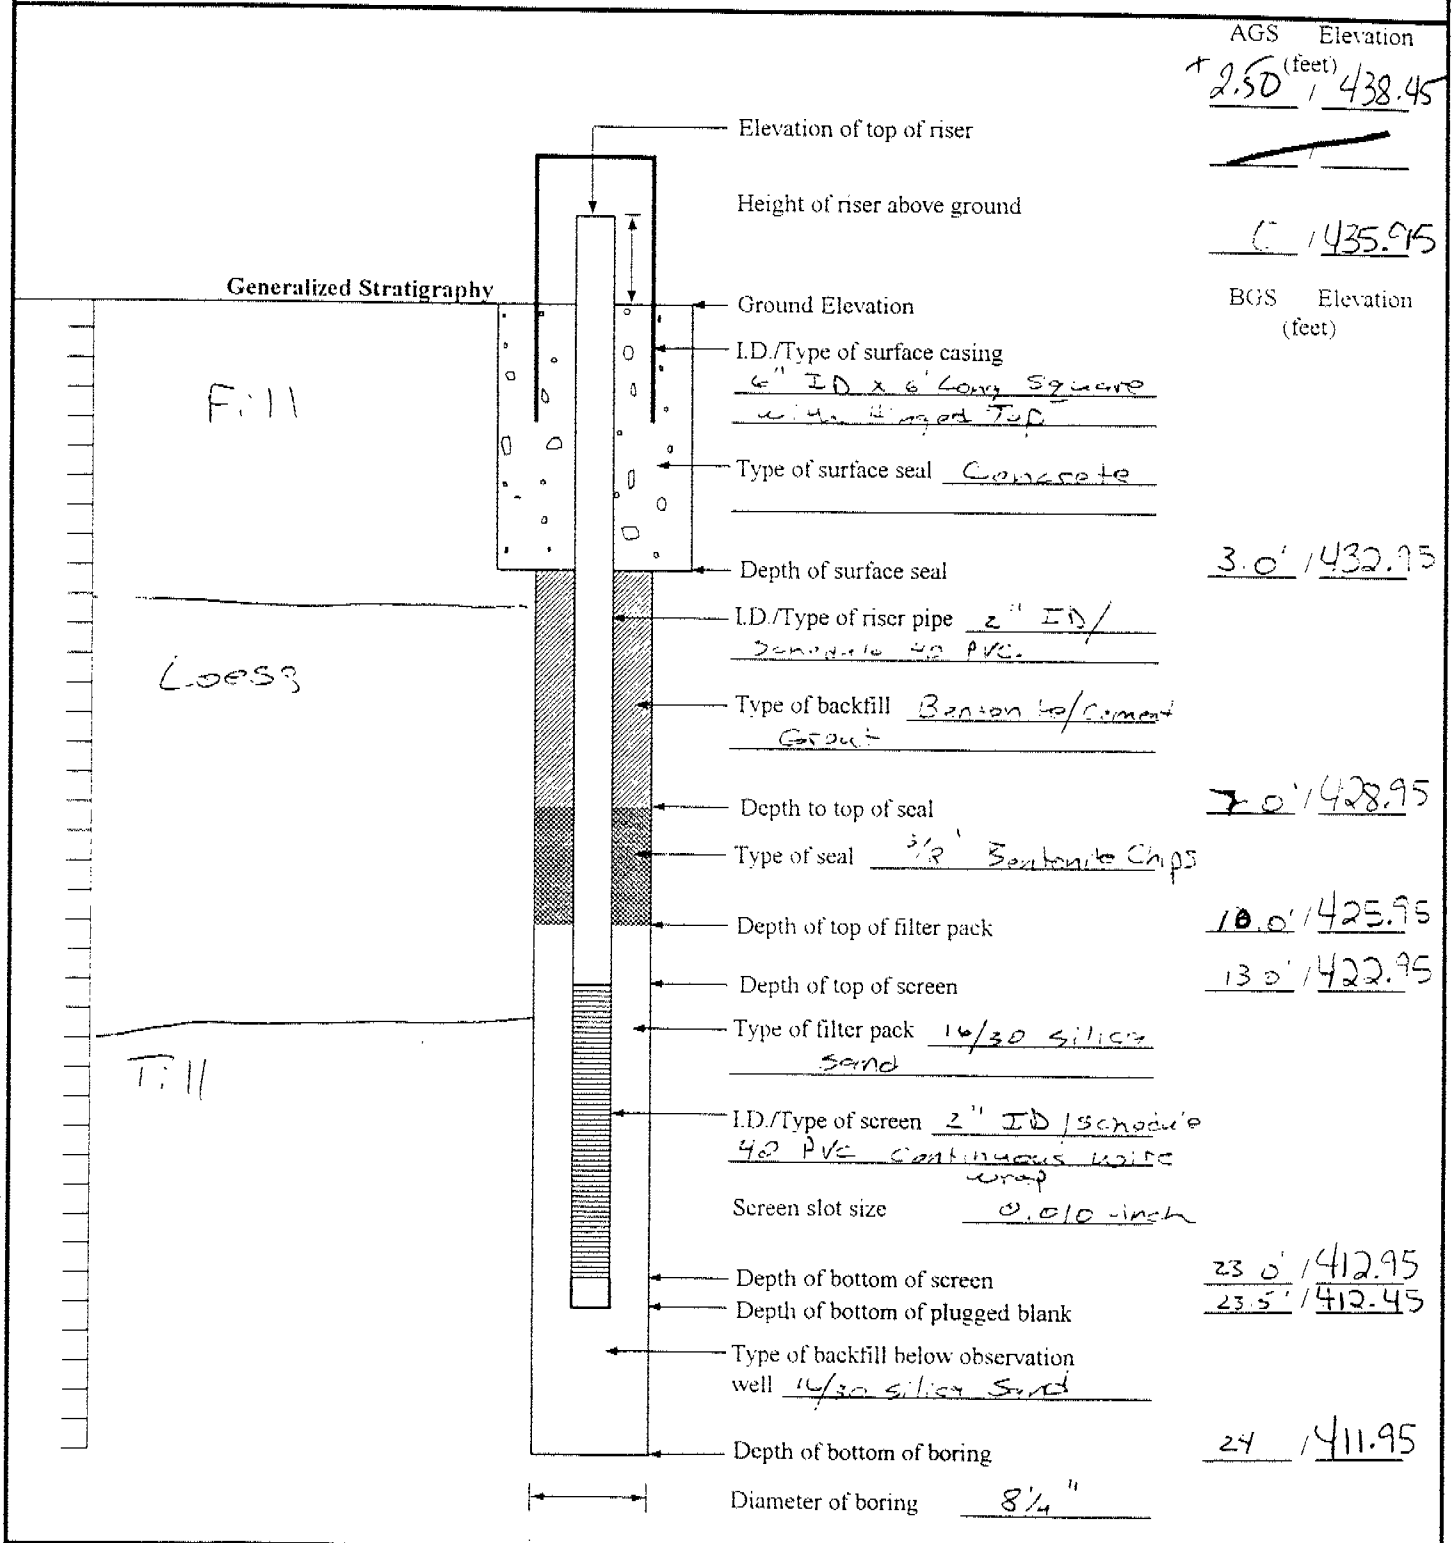 AGS Elevation
(feet)
+ 2.50 / 438.45
Elevation of top of riser
/
Height of riser above ground
/ 435.95
Generalized Stratigraphy
Ground Elevation
BGS Elevation
(feet)
I.D./Type of surface casing
6" ID x 6' Long Square
with Hinged Top
Fill
Type of surface seal Concrete
Depth of surface seal 3.0' / 432.95
I.D./Type of riser pipe 2" ID/
Schedule 40 PVC.
Loess
Type of backfill Bentonite/Cement
Grout
Depth to top of seal 7.0' / 428.95
Type of seal 3/8" Bentonite Chips
Depth of top of filter pack 10.0' / 425.95
Depth of top of screen 13.0' / 422.95
Type of filter pack 16/30 silica
sand
Till
I.D./Type of screen 2" ID / Schedule
40 PVC Continuous wire
wrap
Screen slot size 0.010-inch
Depth of bottom of screen 23.0' / 412.95
Depth of bottom of plugged blank 23.5' / 412.45
Type of backfill below observation
well 16/30 Silica Sand
Depth of bottom of boring 24 / 411.95
Diameter of boring 8 1/4"